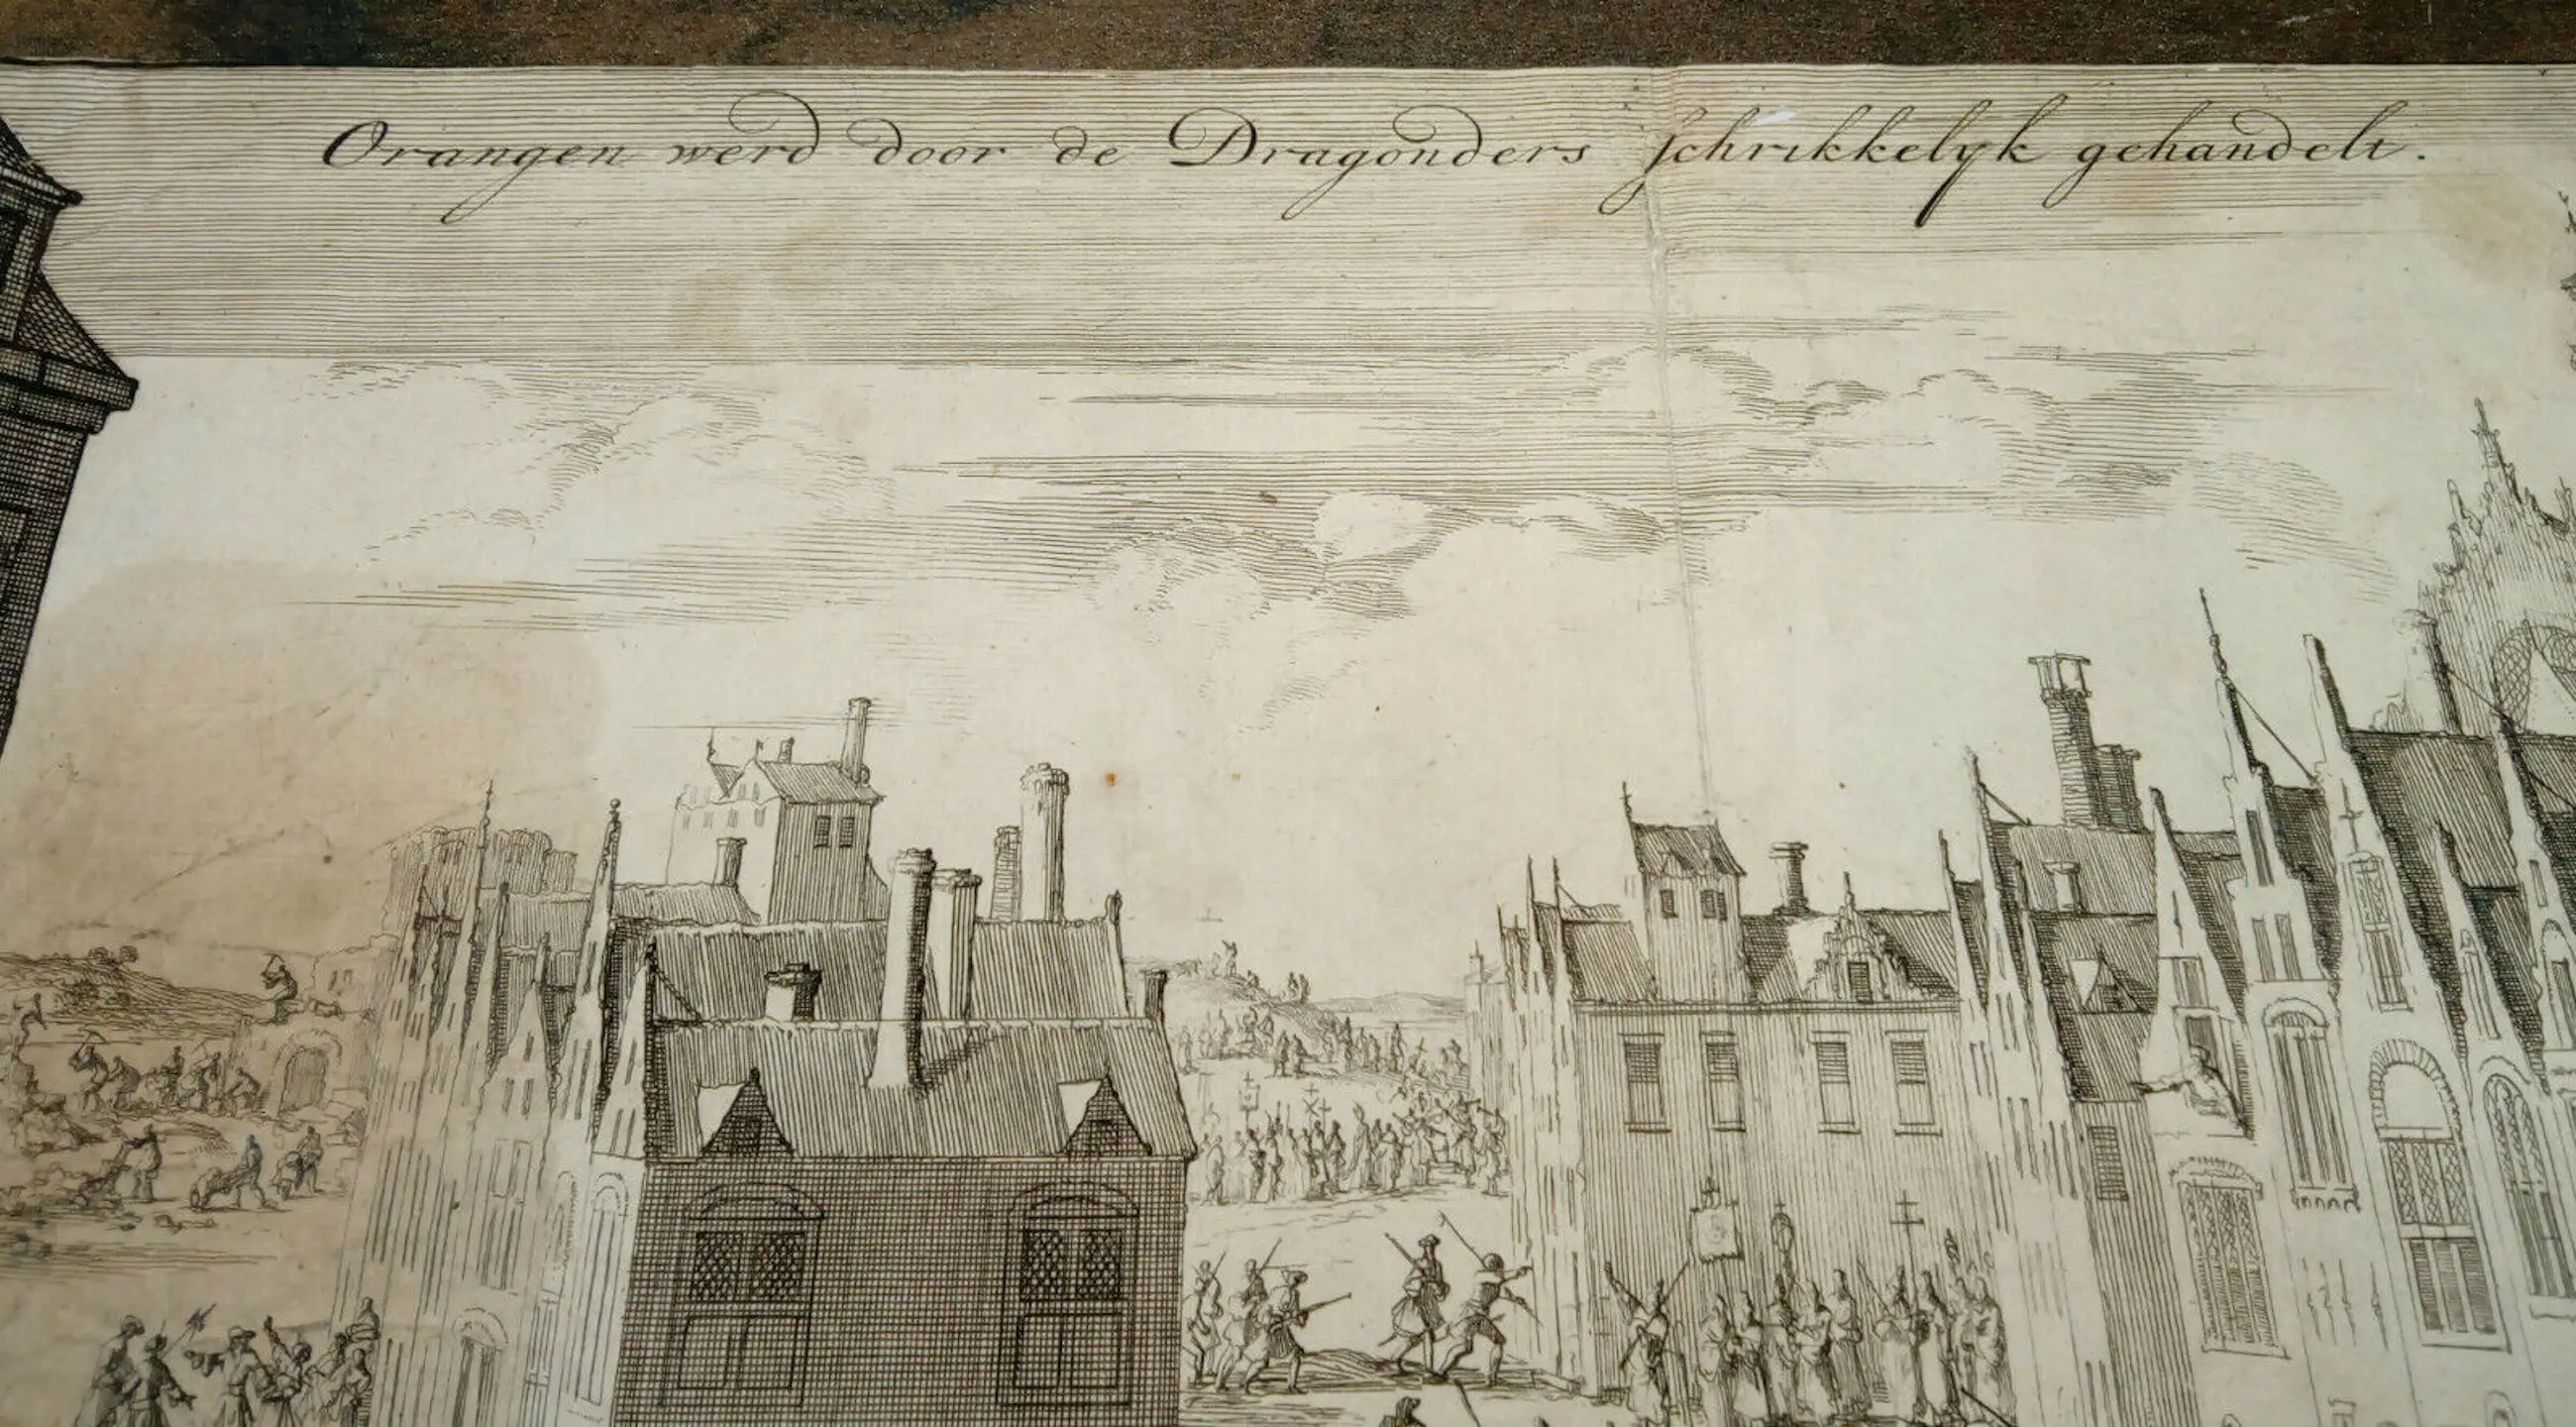 Orangen werd door de Dragonders schrikkelyk gehandelt.